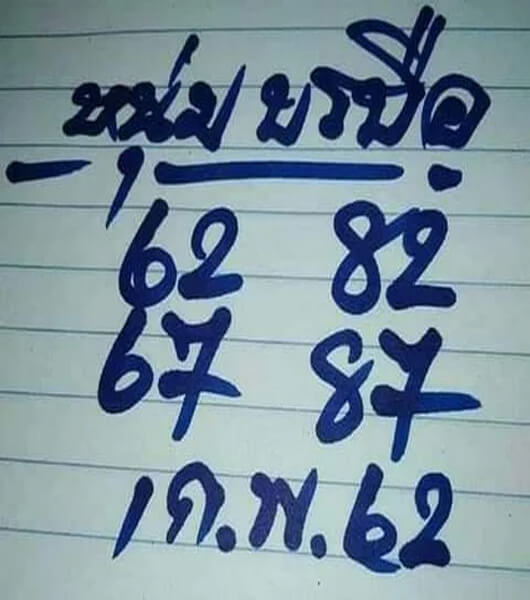 หนุ่ม บรบือ
62 82
67 87
1 ก.พ. 62